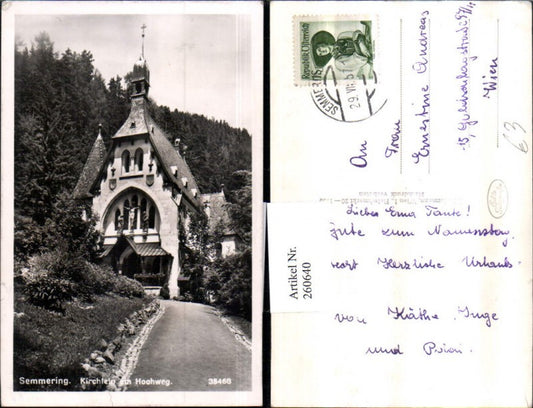 Semmering. Kirchlein am Hochweg. 38468
Republik Österreich
SEMMERING
29. VII. 51
An
Frau
Ernestine Andreas
Wien
63
Artikel Nr.
260640
Liebe Erna Tante!
Gute zum Namenstag
Herzliche Urlaubs-
von Käthe, Inge
und